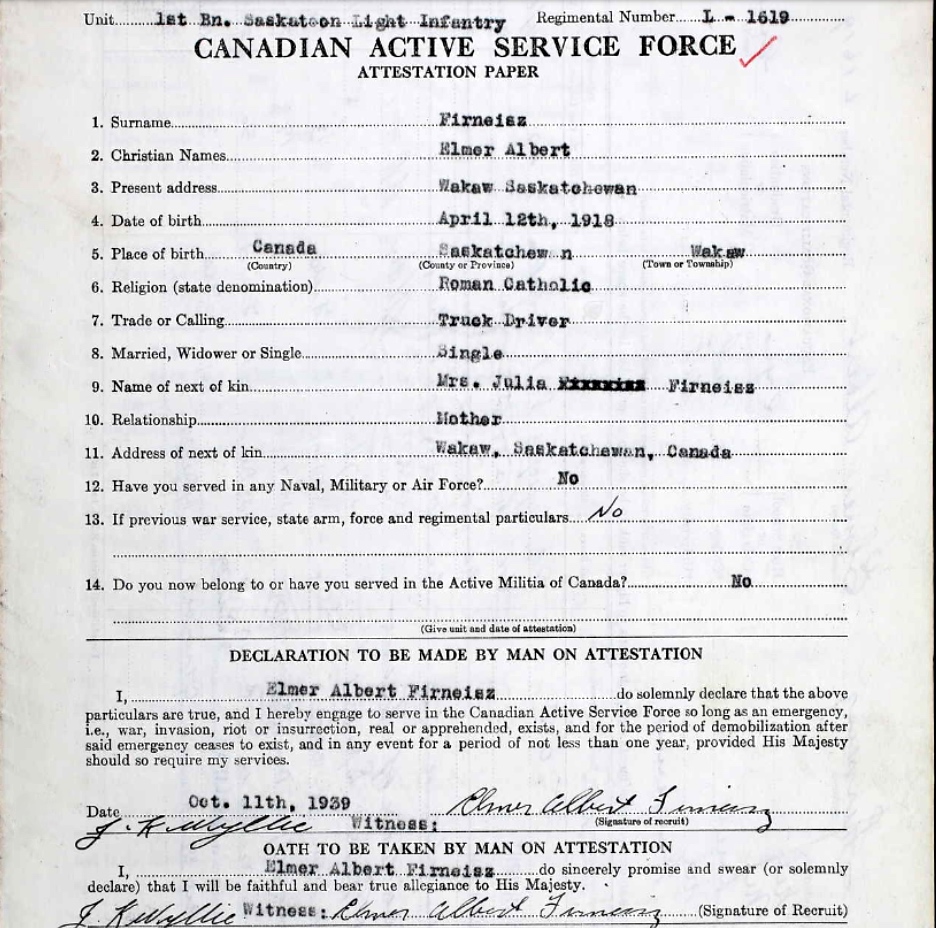 Unit 1st Bn. Saskatoon Light Infantry Regimental Number L - 1619
CANADIAN ACTIVE SERVICE FORCE
ATTESTATION PAPER
1. Surname Firneisz
2. Christian Names Elmer Albert
3. Present address Wakaw Saskatchewan
4. Date of birth April 12th, 1918
5. Place of birth Canada Saskatchewan Wakaw
(Country) (County or Province) (Town or Township)
6. Religion (state denomination) Roman Catholic
7. Trade or Calling Truck Driver
8. Married, Widower or Single Single
9. Name of next of kin Mrs. Julia Firneisz
10. Relationship Mother
11. Address of next of kin Wakaw, Saskatchewan, Canada
12. Have you served in any Naval, Military or Air Force? No
13. If previous war service, state arm, force and regimental particulars No
14. Do you now belong to or have you served in the Active Militia of Canada? No
(Give unit and date of attestation)
DECLARATION TO BE MADE BY MAN ON ATTESTATION
I, Elmer Albert Firneisz do solemnly declare that the above
particulars are true, and I hereby engage to serve in the Canadian Active Service Force so long as an emergency,
i.e., war, invasion, riot or insurrection, real or apprehended, exists, and for the period of demobilization after
said emergency ceases to exist, and in any event for a period of not less than one year, provided His Majesty
should so require my services.
Date Oct. 11th, 1939 Elmer Albert Firneisz
J. K. Wyllie Witness: (Signature of recruit)
OATH TO BE TAKEN BY MAN ON ATTESTATION
I, Elmer Albert Firneisz do sincerely promise and swear (or solemnly
declare) that I will be faithful and bear true allegiance to His Majesty.
J. K. Wyllie Witness: Elmer Albert Firneisz (Signature of Recruit)